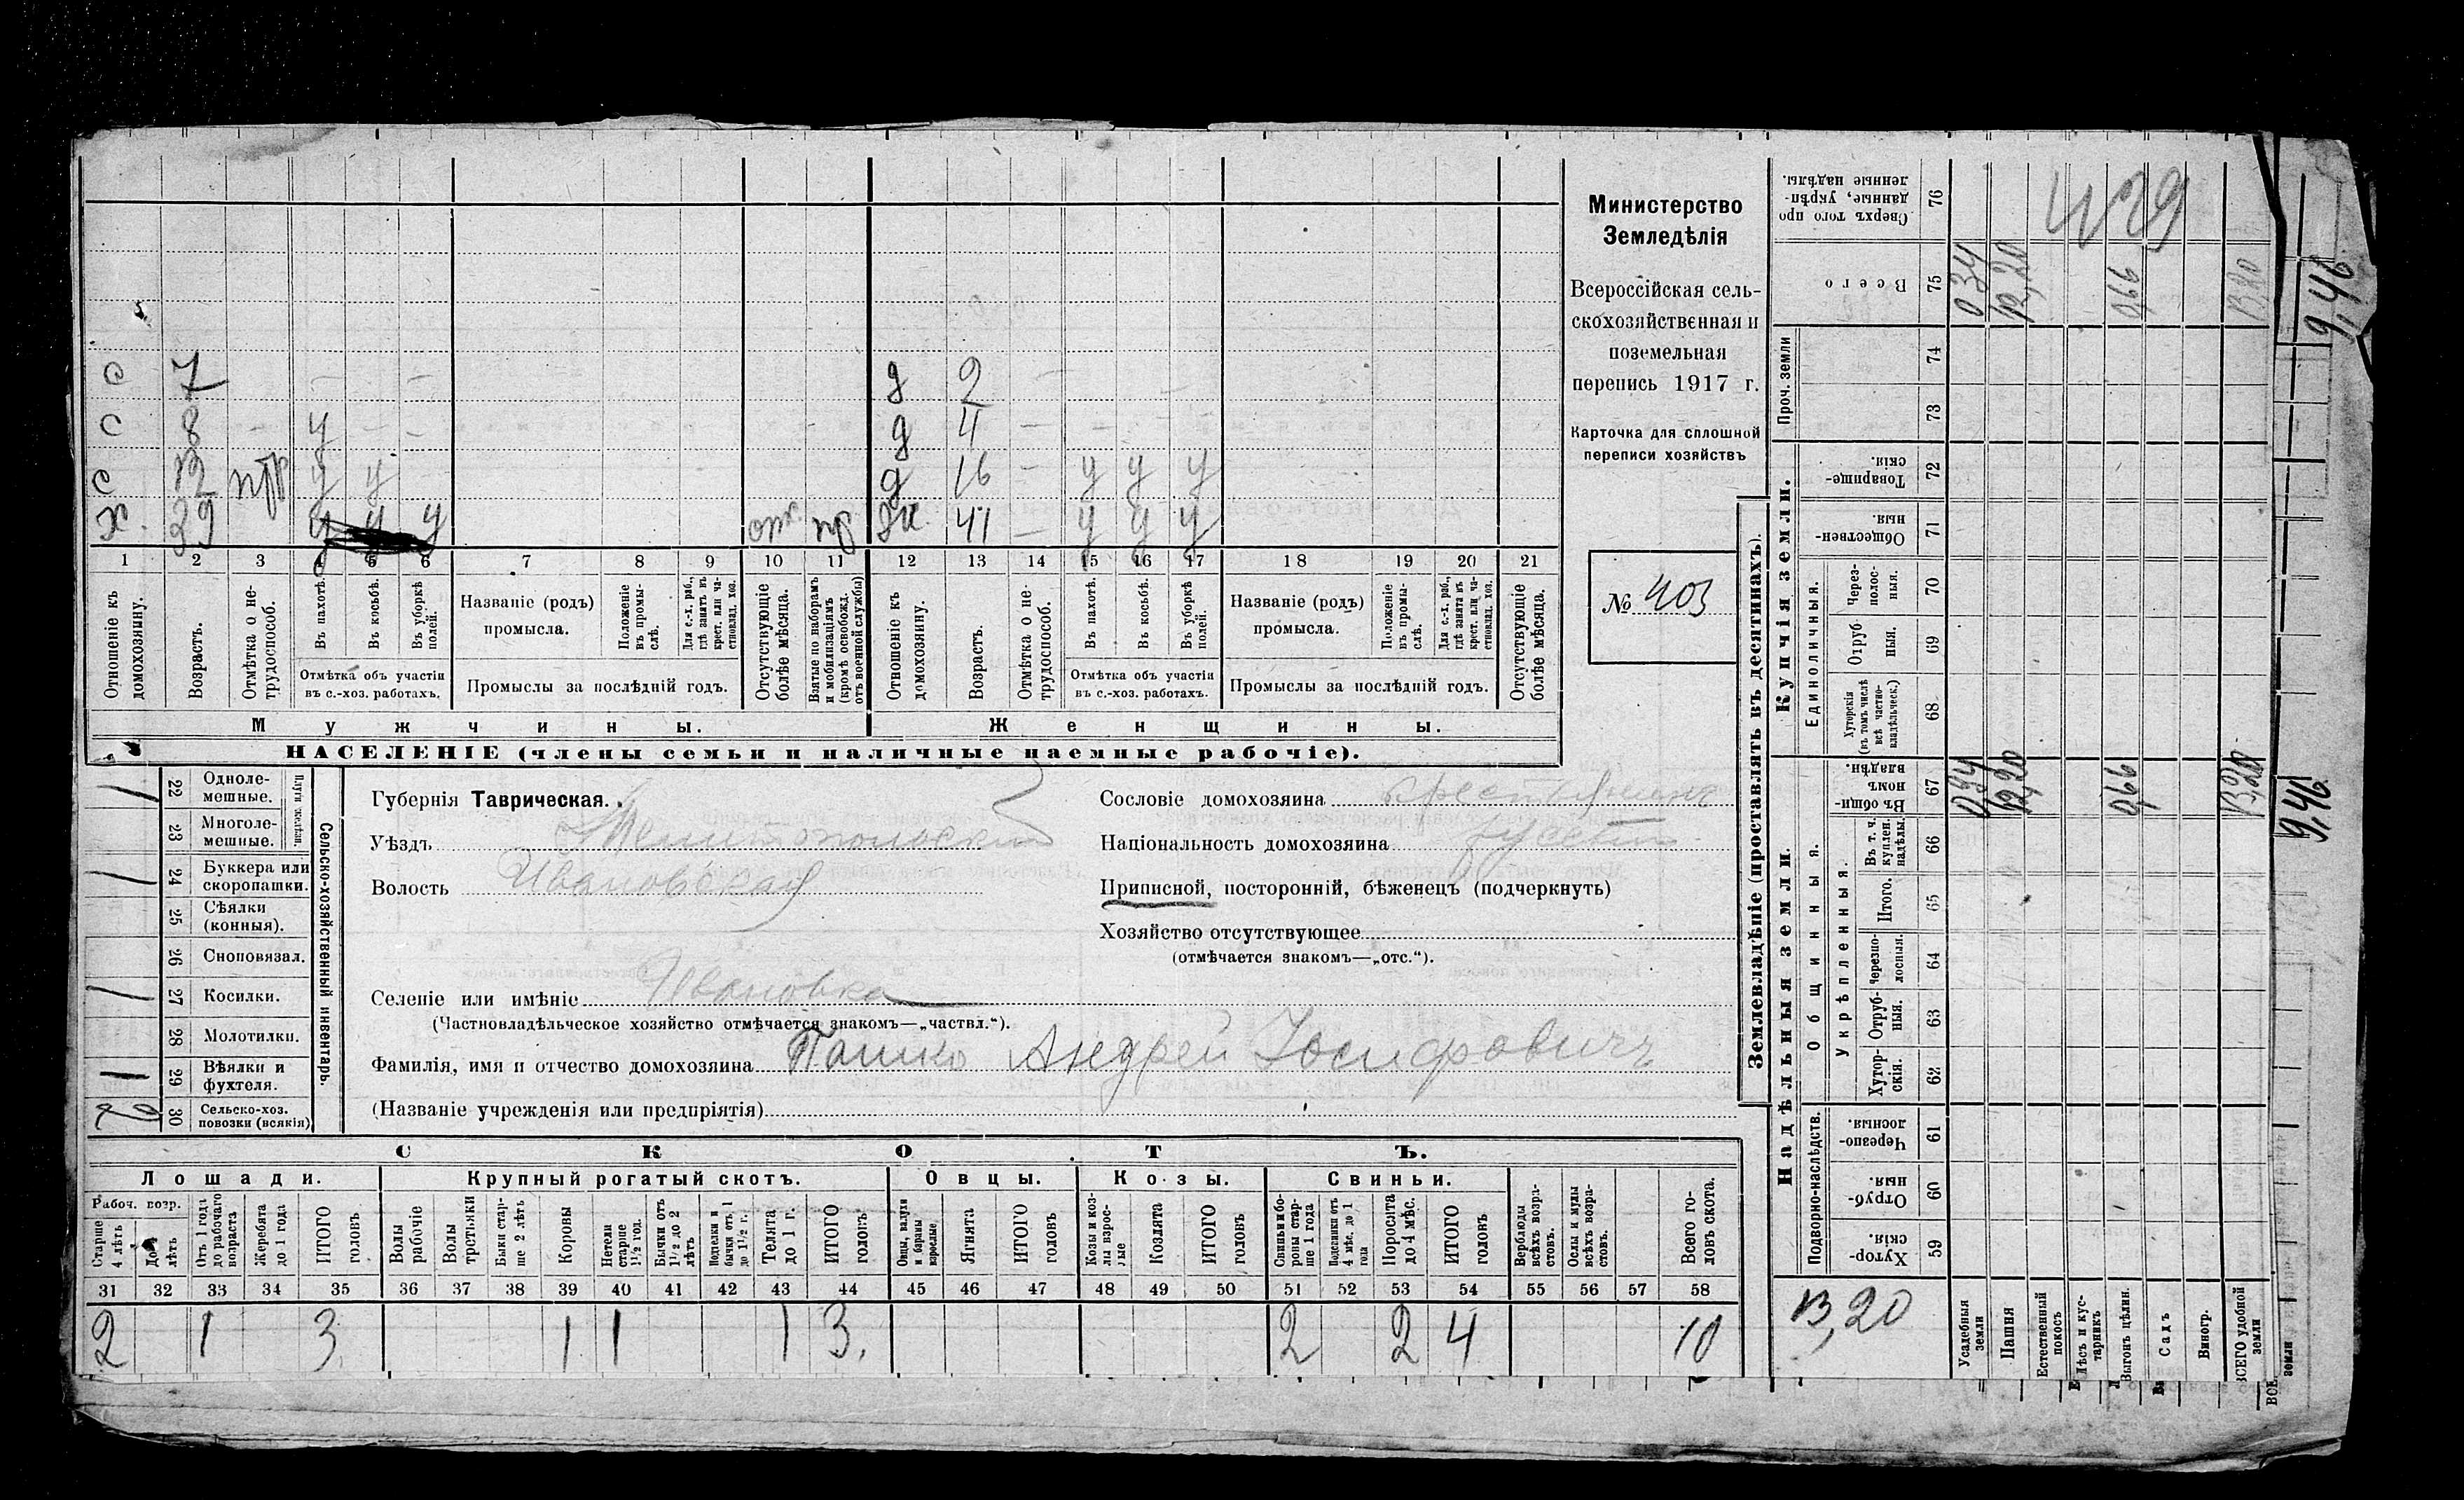 Министерство
Земледѣлія
Всероссійская сель-
скохозяйственная и
поземельная
перепись 1917 г.
Карточка для сплошной
переписи хозяйствъ
№ 403
с 7
с 8 - у - -
с 12 у у
х. 39 у у у
д 2 -
д 4 - - - -
д 16 - у у у
жн. 41 - у у у
1 2 3 4 5 6 7 8 9 10 11 12 13 14 15 16 17 18 19 20 21
Отношеніе къ домохозяину.
Возрастъ.
Отмѣтка о не-трудоспособ.
Въ пахотѣ.
Въ косьбѣ.
Въ уборкѣ полей.
Отмѣтка объ участіи
въ с.-хоз. работахъ.
Названіе (родъ)
промысла.
Положеніе въ промы-слѣ.
Для с.-х. раб., гдѣ занятъ въ крест. или ча-стновлад. хоз.
Промыслы за послѣдній годъ.
Отсутствующіе болѣе мѣсяца.
Взятые по наборамъ и мобилизаціямъ (кромѣ освобожд. отъ военной службы)
Отношеніе къ домохозяину.
Возрастъ.
Отмѣтка о не-трудоспособ.
Въ пахотѣ.
Въ косьбѣ.
Въ уборкѣ полей.
Отмѣтка объ участіи
въ с.-хоз. работахъ.
Названіе (родъ)
промысла.
Положеніе въ промы-слѣ.
Для с.-х. раб., гдѣ занята въ крест. или ча-стновлад. хоз.
Промыслы за послѣдній годъ.
Отсутствующіе болѣе мѣсяца.
Мужчины.
Женщины.
НАСЕЛЕНІЕ (члены семьи и наличные наемные рабочіе).
Сельско-хозяйственный инвентарь.
Плуги желѣзн.
22 Одноле-
мешные.
23 Многоле-
мешные.
24 Буккера или
скоропашки.
25 Сѣялки
(конныя).
26 Сноповязал.
27 Косилки.
28 Молотилки.
29 Вѣялки и
фухтеля.
30 Сельско-хоз.
повозки (всякія)
Губернія Таврическая.
Уѣздъ Мелитопольский
Волость Ивановская
Селеніе или имѣніе Ивановка
(Частновладѣльческое хозяйство отмѣчается знакомъ—„частвл.“).
Фамилія, имя и отчество домохозяина Пашко Андрей Іосифовичъ
(Названіе учрежденія или предпріятія)
Сословіе домохозяина крестьянинъ
Національность домохозяина
Приписной, посторонній, бѣженецъ (подчеркнуть)
Хозяйство отсутствующее
(отмѣчается знакомъ—„отс.“).
СКОТЪ.
Лошади. Крупный рогатый скотъ. Овцы. Козы. Свиньи.
Рабоч. возр.
Старше 4 лѣтъ
До 4 лѣтъ
Отъ 1 года до рабочаго возраста
Жеребята до 1 года
ИТОГО головъ
Волы рабочіе
Волы третьяки
Быки стар-ше 2 лѣтъ
Коровы
Нетели старше 1½ год.
Бычки отъ 1½ до 2 лѣтъ
бычки отъ 1 до 1½ г.
Телята до 1 г.
ИТОГО головъ
Овцы, валухи и бараны взрослые
Ягнята
ИТОГО головъ
Козы и коз-лы взрос-лые
Козлята
ИТОГО головъ
Свиньи и бо-ровы стар-ше 1 года
Подсвинки отъ 4 мѣс. до 1 года
Поросята до 4 мѣс.
ИТОГО головъ
Верблюды всѣхъ возра-стовъ.
Ослы и мулы всѣхъ возра-стовъ.
Всего го-ловъ скота.
31 32 33 34 35 36 37 38 39 40 41 42 43 44 45 46 47 48 49 50 51 52 53 54 55 56 57 58
2 1 3 1 1 1 3 2 2 4 10
Землевладѣніе (проставлять въ десятинахъ).
Купчія земли.
Надѣльныя земли.
Сверхъ того про данные, укрѣп-ленные надѣлы. 76
Всего 75
0 34 12,20 0,66 13,20
Проч. земли 74 73
Товарище-скія. 72
Обществен-ныя. 71
Единоличныя.
Через-полос-ныя. 70
Отруб ныя. 69
Хуторскія (въ томъ числѣ всѣ частно-владѣльческ.) 68
Общинныя.
Въ общи-номъ владѣн. 67
0 34 12,20 0,66 13,20
Укрѣпленныя.
Въ т. ч. куплен. надѣлы. 66
Итого. 65
Черезпо-лосныя. 64
Отруб-ныя. 63
Хутор-скія. 62
Подворно-наслѣдств.
Черезпо-лосныя. 61
Отруб-ныя. 60
Хутор-скія. 59
13,20
Усадебныя земли
Пашня
Естественный покосъ
Лѣсъ и кус-тарникъ
Выгонъ цѣлин.
Садъ
Виногр.
ВСЕГО удобной земли
9,46
9,46